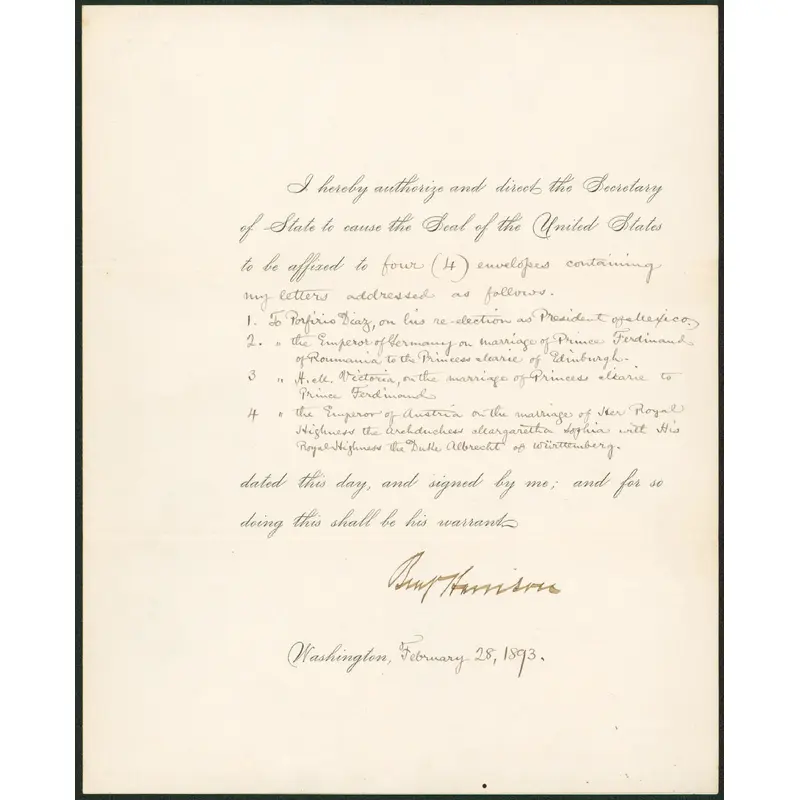 I hereby authorize and direct the Secretary
of State to cause the Seal of the United States
to be affixed to four (4) envelopes containing
my letters addressed as follows.
1. To Porfirio Diaz, on his re-election as President of Mexico.
2. " the Emperor of Germany on marriage of Prince Ferdinand
of Roumania to the Princess Marie of Edinburgh.
3 " H.M. Victoria, on the marriage of Princess Marie to
Prince Ferdinand
4 " the Emperor of Austria on the marriage of Her Royal
Highness the Archduchess Margaretha Sophia with His
Royal Highness the Duke Albrecht of Württemberg.
dated this day, and signed by me; and for so
doing this shall be his warrant
Benj Harrison
Washington, February 28, 1893.